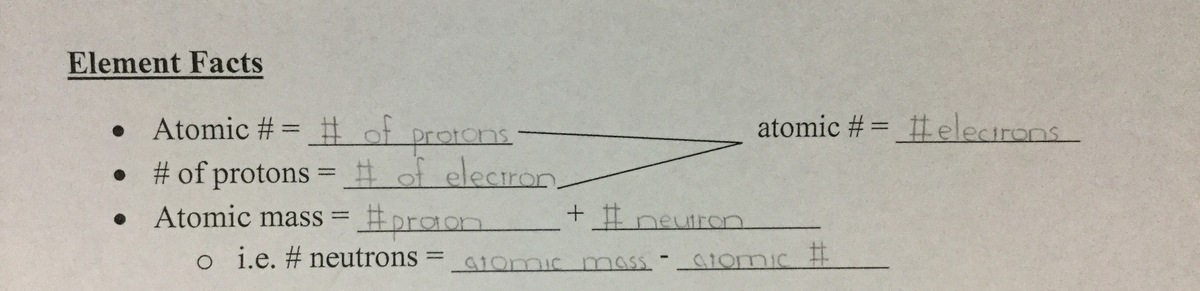 Element Facts
• Atomic # = # of protons atomic # = # elecirons
• # of protons = # of electron
• Atomic mass = # proton + # neutron
o i.e. # neutrons = atomic mass - atomic #